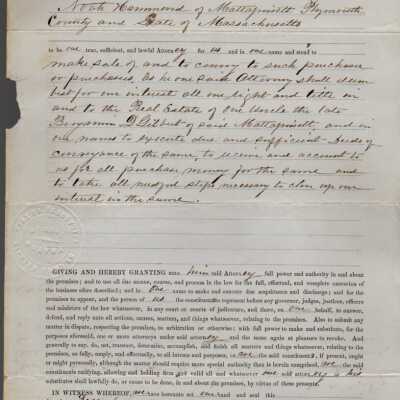 Noah Hammond of Mattapoisett Plymouth
County and State of Massachusetts
to be our true, sufficient, and lawful Attorney for us and in our name and stead to
make sale of and to convey to such purchaser
or purchasers, as he our said Attorney shall deem
best for our interest all our right and title in
and to the Real Estate of our Uncle the late
Benjamin D. of said Mattapoisett, and in
our names to execute due and sufficient deeds of
conveyance of the same, to receive and account to
us for all purchase money for the same and
to take all needful steps necessary to close up our
interest in the same.
GIVING AND HEREBY GRANTING unto him said Attorney full power and authority in and about
the premises; and to use all due means, course, and process in the law for the full, effectual, and complete execution of
the business afore described; and in our name to make and execute due acquittance and discharge; and for the
premises to appear, and the person of us the constituents represent before any governor, judges, justices, officers
and ministers of the law whatsoever, in any court or courts of judicature, and there, on our behalf, to answer,
defend, and reply unto all actions, causes, matters, and things whatsoever, relating to the premises. Also to submit any
matter in dispute, respecting the premises, to arbitration or otherwise; with full power to make and substitute, for the
purposes aforesaid, one or more attorneys under said attorney and the same again at pleasure to revoke. And
generally to say, do, act, transact, determine, accomplish, and finish all matters and things whatsoever, relating to the
premises, as fully, amply, and effectually, to all intents and purposes, as we the said constituents, if present, ought
or might personally, although the matter should require more special authority than is herein comprised, we the said
constituents ratifying, allowing and holding firm and valid all and whatsoever our said attorney or his
substitutes shall lawfully do, or cause to be done, in and about the premises, by virtue of these presents.
IN WITNESS WHEREOF, we have hereunto set our hand and seal this